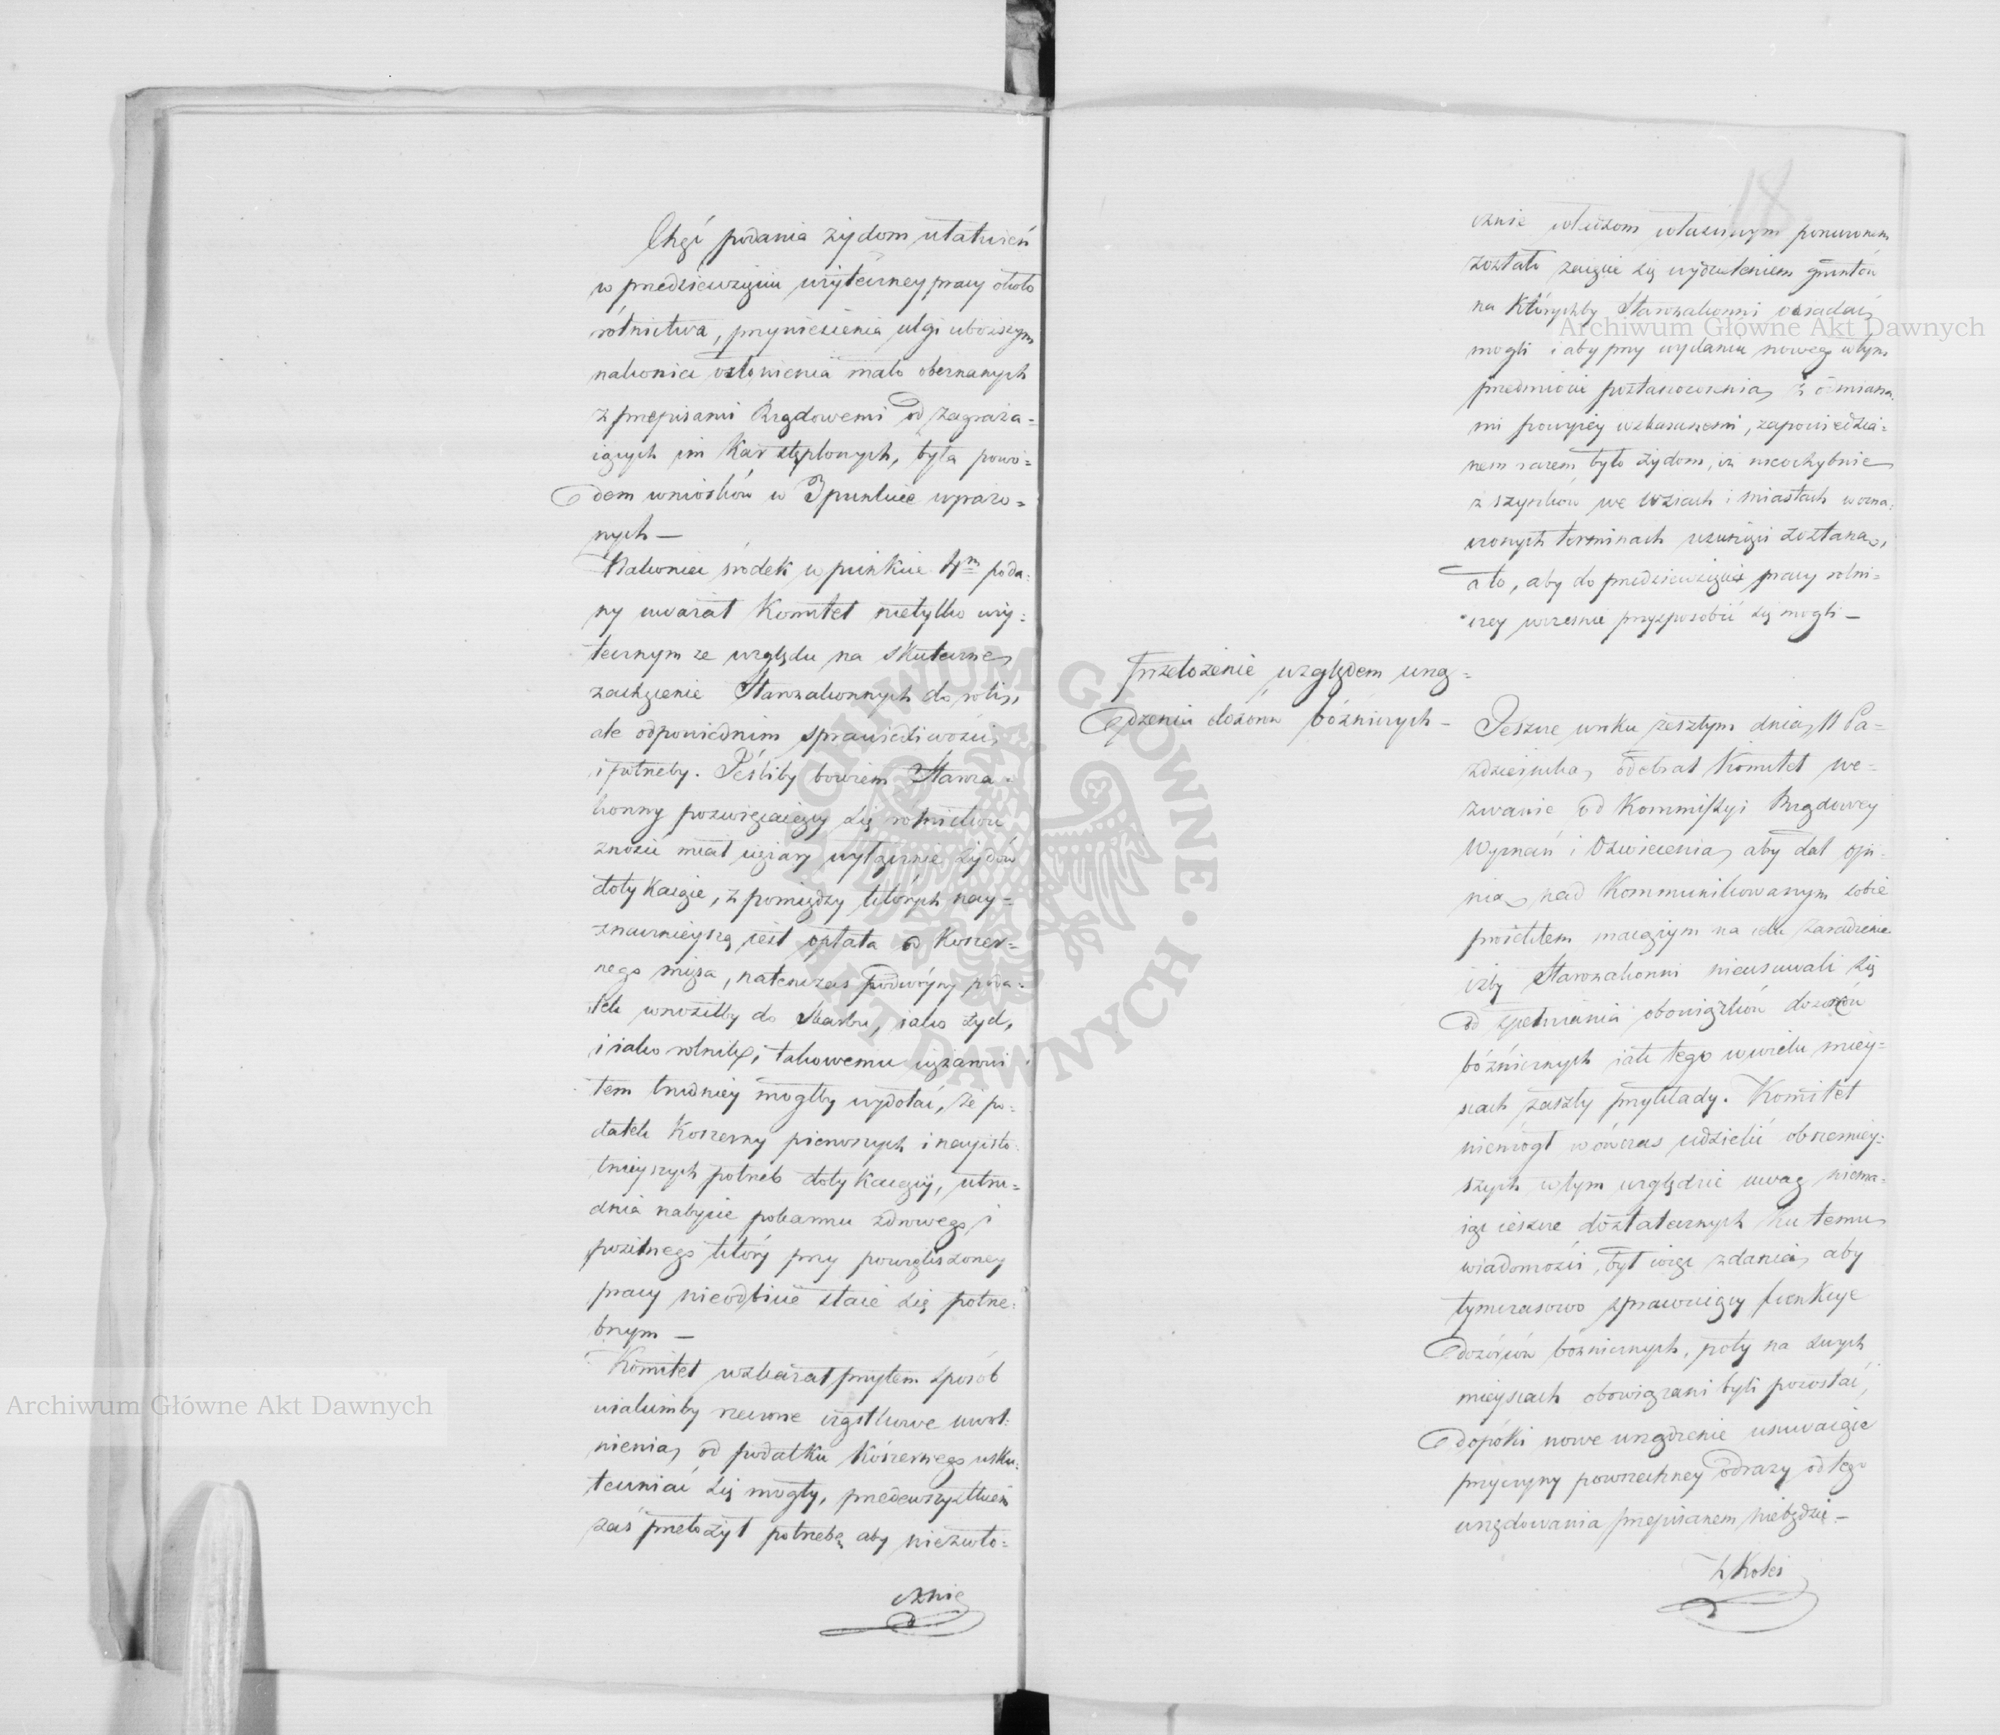 Chęć podania żydom ułatwień
w przedsiewzięciu użyteczney pracy około
rolnictwa, przyniesienia ulgi uboższym
nakoniec ocalenia mało obeznanych
z przepisami Rządowemi od zagraża=
iących im kar stęplowych, była powo=
dem wniosków w 3 punkcie wyrażo=
nych —
Nakoniec środek w punkcie 4m poda=
ny uważał Komitet nietylko uży=
tecznym ze względu na skuteczne
zachęcenie Starozakonnych do roli,
ale odpowiednim sprawiedliwości
i potrzeby. Jeśliby bowiem Staroza=
konny poświęcaiący się rolnictwu
znosić miał ciężary wyłącznie żydów
dotykaiące, z pomiędzy których nay=
znacznieyszą iest opłata od koszer=
nego mięsa, natenczas podwóyny poda=
tek wnosiłby do Skarbu, iako żyd,
i iako rolnik, i takowemu ciężarowi
tem trudniey mógłby wydołać, że po=
datek koszerny pierwszych i nayisto=
tnieyszych potrzeb dotykaiący, utru=
dnia nabycie pokarmu zdrowego i
posilnego który przy powiększoney
pracy nieodbicie staie się potrze=
bnym —
Komitet wskazał przytem sposób
iakimby rzeczone cząstkowe uwol=
nienia od podatku koszernego usku=
teczniać się mogły, przedewszystkiem
zaś przełożył potrzebę aby niezwło=
cznie
18
cznie władzom właściwym poruczonem
zostało zaięcie się wydzieleniem gruntów
na którychby Starozakonni osiadać
mogli i aby przy wydaniu nowego w tym
przedmiocie postanowienia z zmiana=
mi powyżey wskazanemi, zapowiedzia=
nem razem było żydom, iż nieochybnie
z szynków we wsiach i miastach w ozna=
czonych terminach usunięci zostaną,
a to, aby do przedsiewzięcia pracy rolni=
czey wcześnie przysposobić się mogli —
Przełożenie względem urzą=
dzenia dozorów bóżniczych —
Jeszcze w roku zeszłym dnia 11 Pa=
zdziernika odebrał Komitet we=
zwanie od Kommissyi Rządowey
Wyznań i Oświecenia aby dał opi=
nią nad kommunikowanym sobie
proiektem maiącym na celu zaradzenie
iżby Starozakonni nieusuwali się
od spełniania obowiązków dozorów
bóżniczych iak tego w wielu miey=
scach zaszły przykłady. Komitet
niemógł wówczas udzielić obszerniey=
szych w tym względzie uwag niema=
iąc ieszcze dostatecznych ku temu
wiadomości, był więc zdania, aby
tymczasowo sprawuiący funkcye
dozórców bóżniczych, póty na swych
mieyscach obowiązani byli pozostać,
dopóki nowe urządzenie usuwaiące
przyczyny powszechney odrazy od tego
urzędowania przepisanem niebędzie. —